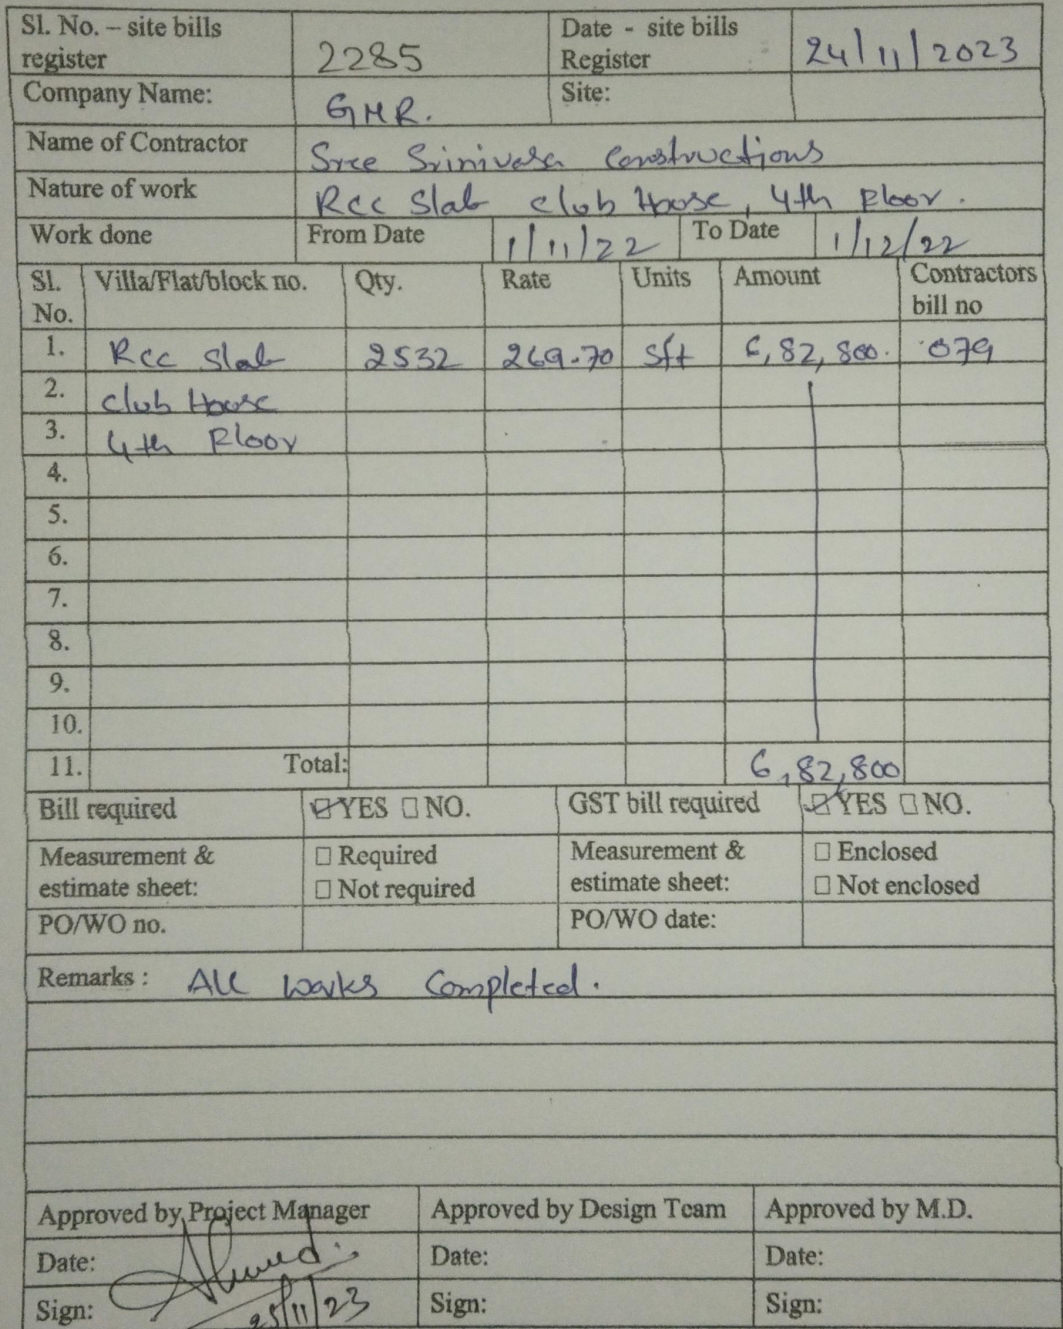 Sl. No. – site bills register 2285 Date - site bills Register 24/11/2023
Company Name: GMR. Site:
Name of Contractor Sree Srinivasa Constructions
Nature of work Rcc Slab club House, 4th Floor.
Work done From Date 1/11/22 To Date 1/12/22
Sl. No. Villa/Flat/block no. Qty. Rate Units Amount Contractors bill no
1. Rcc Slab 2532 269.70 Sft 6,82,800. 079
2. club House
3. 4th Floor
4.
5.
6.
7.
8.
9.
10.
11. Total: 6,82,800
Bill required ☑YES ☐NO. GST bill required ☑YES ☐NO.
Measurement & estimate sheet: ☐ Required ☐ Not required Measurement & estimate sheet: ☐ Enclosed ☐ Not enclosed
PO/WO no. PO/WO date:
Remarks : All works Completed.
Approved by Project Manager Approved by Design Team Approved by M.D.
Date: Date: Date:
Sign: 25/11/23 Sign: Sign: